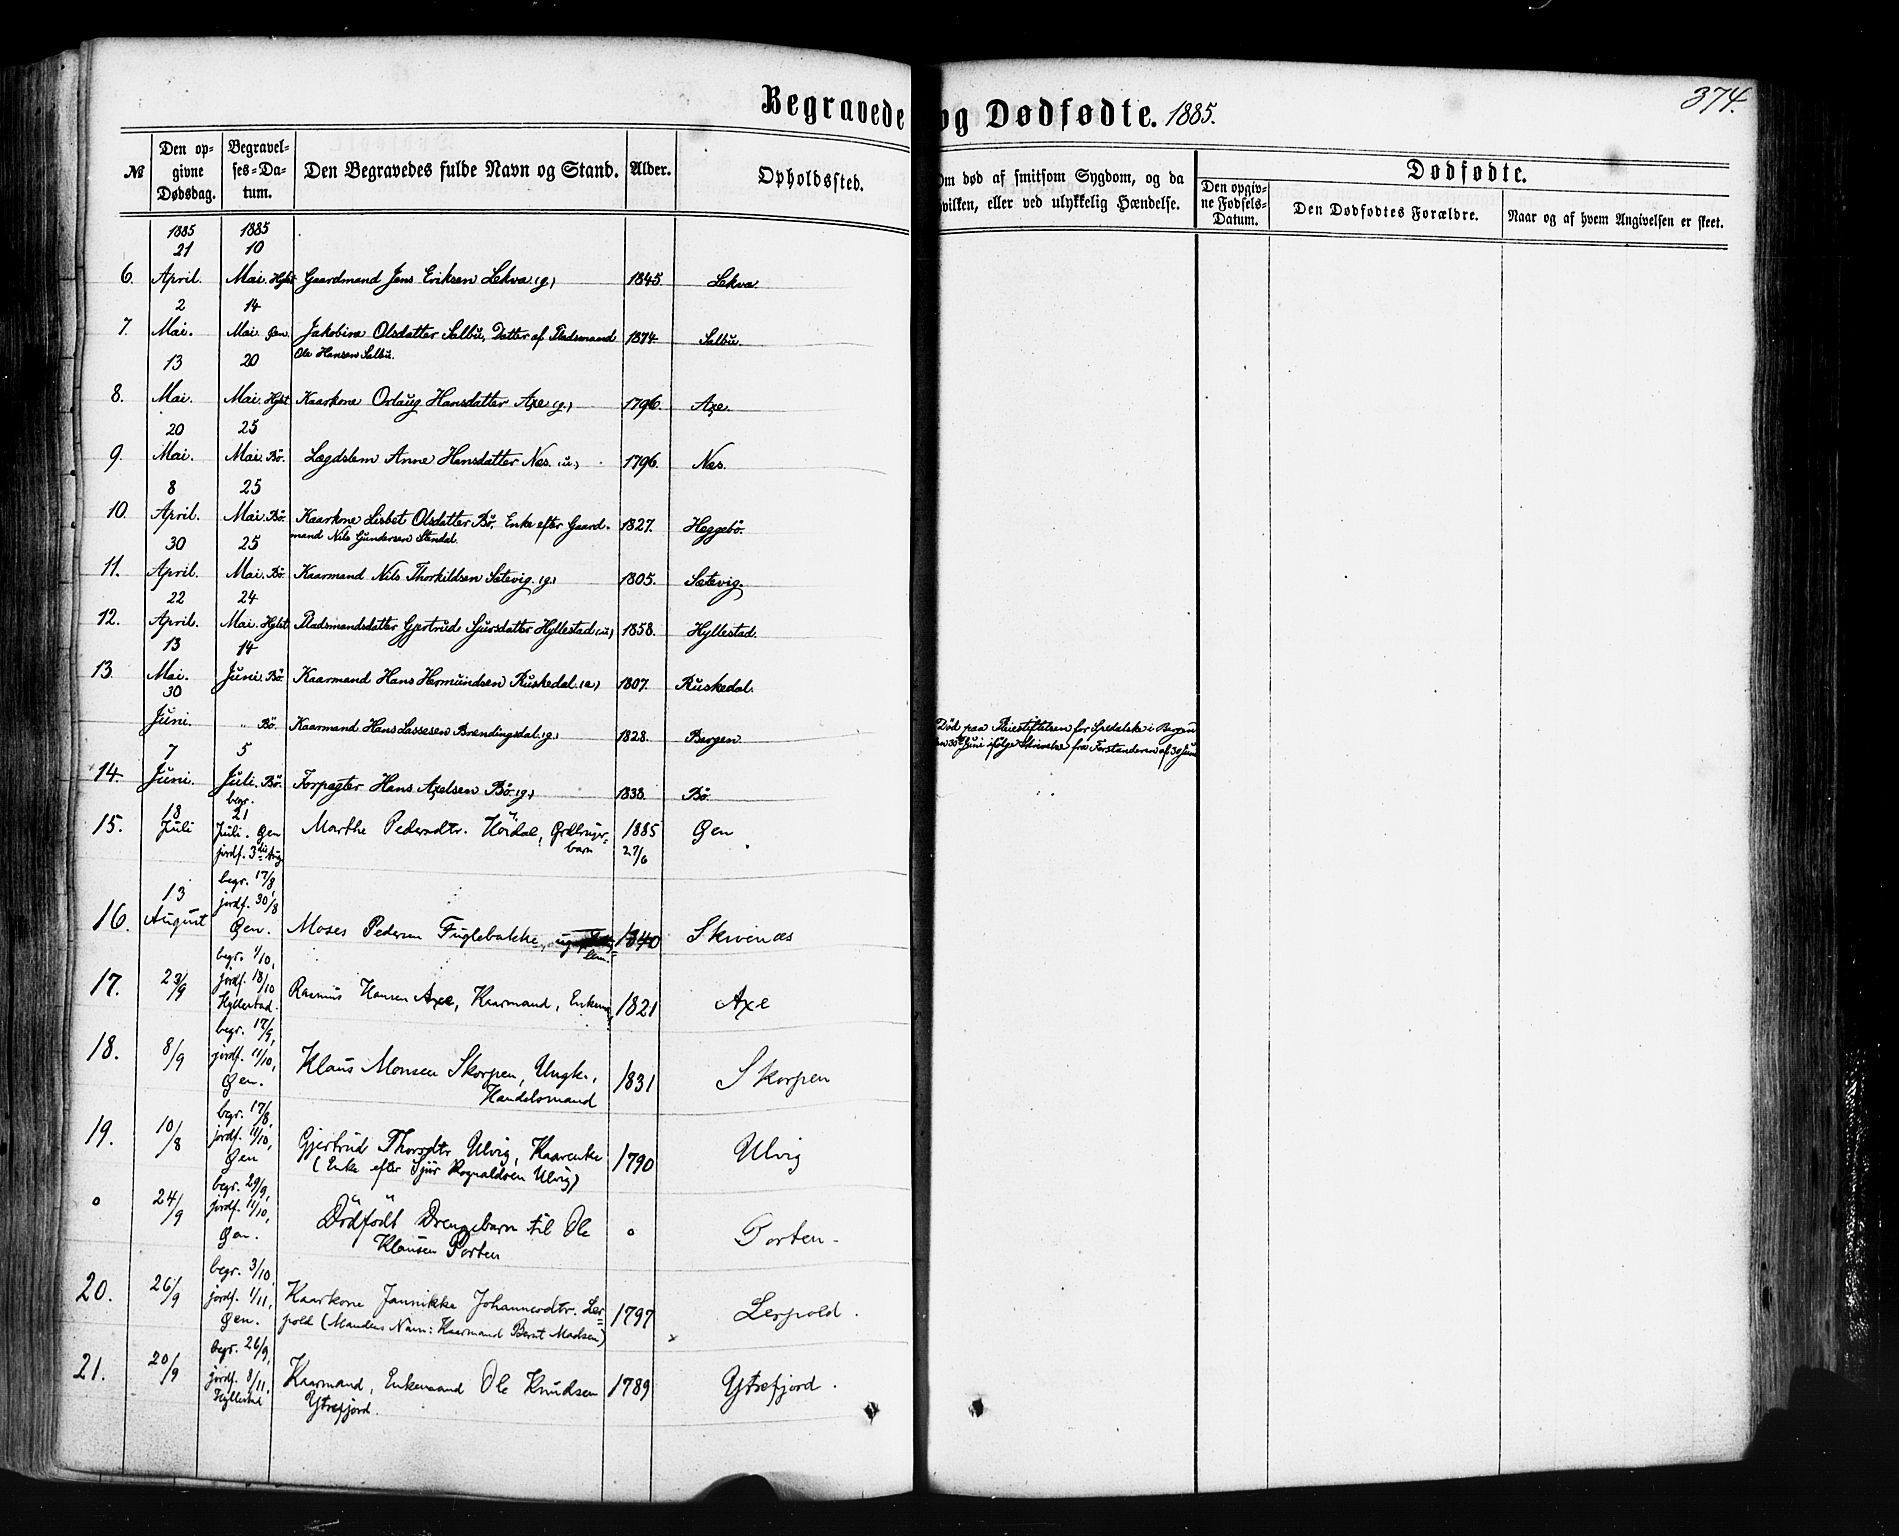 Begravede og Dødfødte. 1885.
374.
№
Den op-
givne
Dødsdag.
Begravel-
ses-Da-
tum.
Den Begravedes fulde Navn og Stand.
Alder.
Opholdssted.
Om død af smitsom Sygdom, og da
hvilken, eller ved ulykkelig Hændelse.
Dødfødte.
Den opgiv-
ne Fødsels-
Datum.
Den Dødfødtes Forældre.
Naar og af hvem Angivelsen er skeet.
1885 1885
21 10
6. April. Mai. Hylst Gaardmand Jens Eriksen Lekva (g.) 1845. Lekva.
2 14
7. Mai. Mai. Øen. Jakobine Olsdatter Salbu, Datter af Pladsmand 1874 Salbu.
Ole Hansen Salbu.
13 20
8. Mai. Mai. Hylst Kaarkone Orlaug Hansdatter Axe (g.) 1796. Axe.
20 25
9. Mai. Mai. Bö. Lægdslem Anne Hansdatter Nes. (u.) 1796. Nes.
8 25
10. April. Mai. Bö. Kaarkone Lisbet Olsdatter Bö, Enke efter Gaard- 1827. Heggebö.
mand Nils Gundersen Standal.
30 25
11. April. Mai. Bö. Kaarmand Nils Thorkildsen Sætevig. (g.) 1805. Sætevig.
22 24
12. April. Mai. Hylst Pladsmandsdatter Gjertrud Sjursdatter Hyllestad (u.) 1858. Hyllestad.
13 14
13. Mai. Juni. Bö. Kaarmand Hans Hermundsen Ruskedal. (e.) 1807. Ruskedal.
30
Juni " Bö. Kaarmand Hans Lassesen Brendingsdal. (g.) 1828. Bergen.
Död paa Pleiestiftelsen for Spedalske i Bergen
den 30te Juni ifølge Skrivelse fra Forstanderen af 30 Juni
7 5
14. Juni. Juli. Bö. Forpagter Hans Axelsen Bö. (g.) 1838. Bö.
18 begr. 21
15. Juli Juli. Øen Marthe Pedersdtr. Höidal, 1885 Øen
jordf. 3die Aug barn 27/6
13 begr. 17/8,
jordf. 30/8
16. August Øen. Moses Pedersen Fuglebakke, 1840 Skivenæs
lem.
begr. 1/10,
17. 23/9 jordf. 18/10 Rasmus Hansen Axe, Kaarmand, Enkem., 1821 Axe
Hyllestad.
begr. 17/9,
18. 8/9 jordf. 11/10, Klaus Monsen Skorpen, Ungk., 1831 Skorpen
Øen. Handelsmand
begr. 17/8,
19. 10/8 jordf. 11/10, Gjertrud Thorsdtr Ulvig, Kaarenke 1790 Ulvig
Øen (Enke efter Sjur Rognaldsen Ulvig)
begr. 29/9,
o 24/9 jordf. 11/10, Dödfödt Drengebarn til Ole o Porten.
Øen. Klausen Porten
begr. 3/10,
20. 26/9 jordf. 1/11, Kaarkone Jannikke Johannesdtr. Ler= 1797 Lerpold.
Øen. pold (Mandens Navn: Kaarmand Bernt Madsen)
begr. 26/9,
21. 20/9 jordf. 8/11, Kaarmand, Enkemand Ole Knudsen 1789 Ytrefjord.
Hyllestad Ytrefjord.